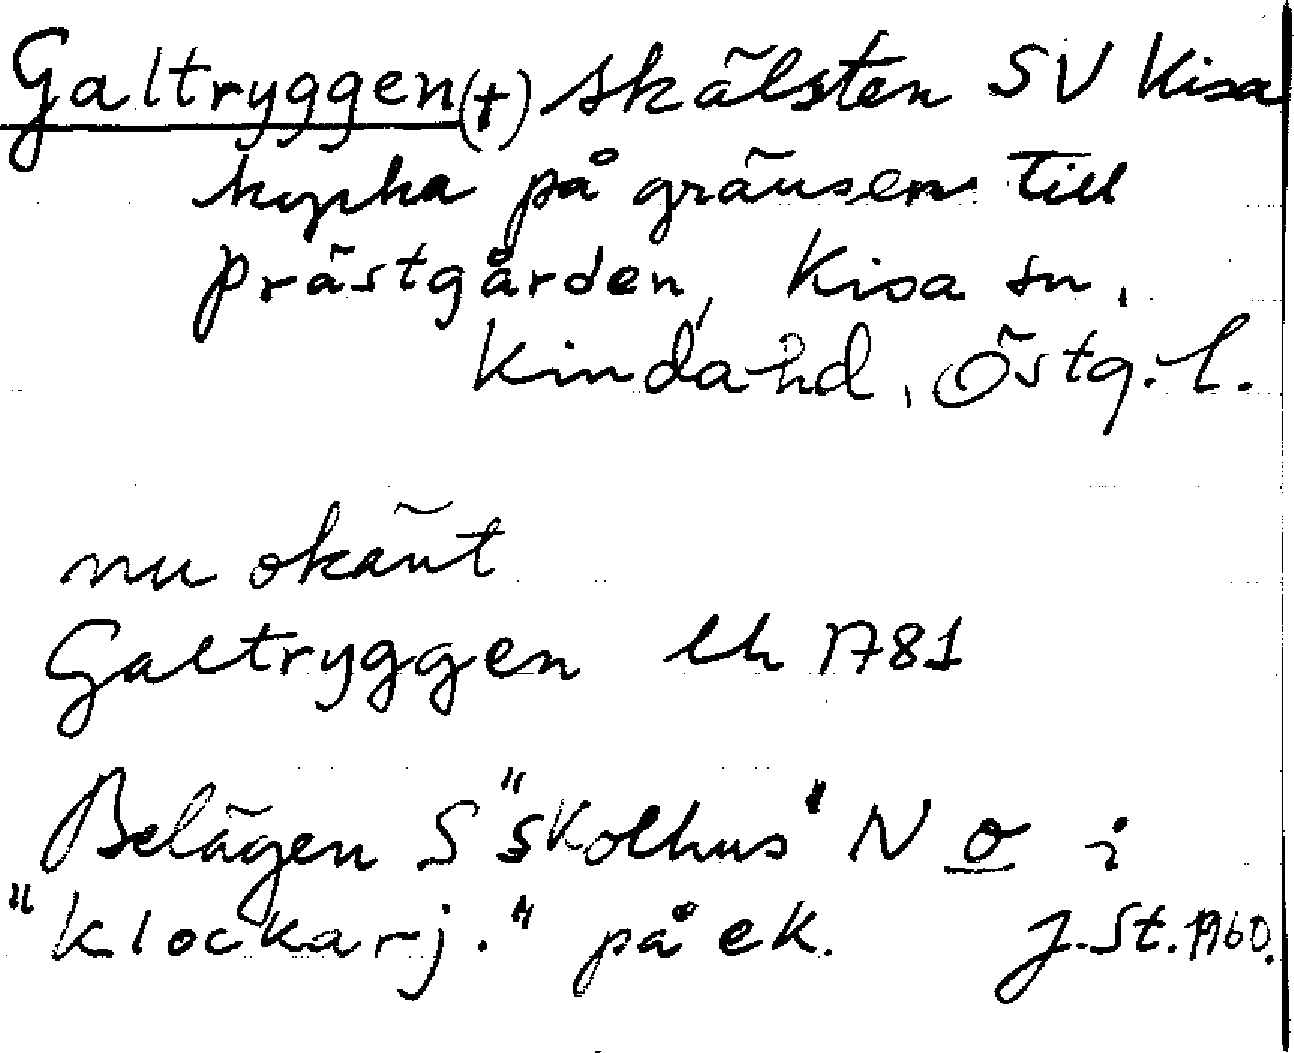 Galtryggen (†) skälsten SV Kisa
kyrka på gränsen till
prästgården, Kisa sn,
Kinda hd, Östg. l.
nu okänt
Galtryggen lh 1781
Belägen S "skolhus" N o i
"klockarj." på ek. J. St. 1960.